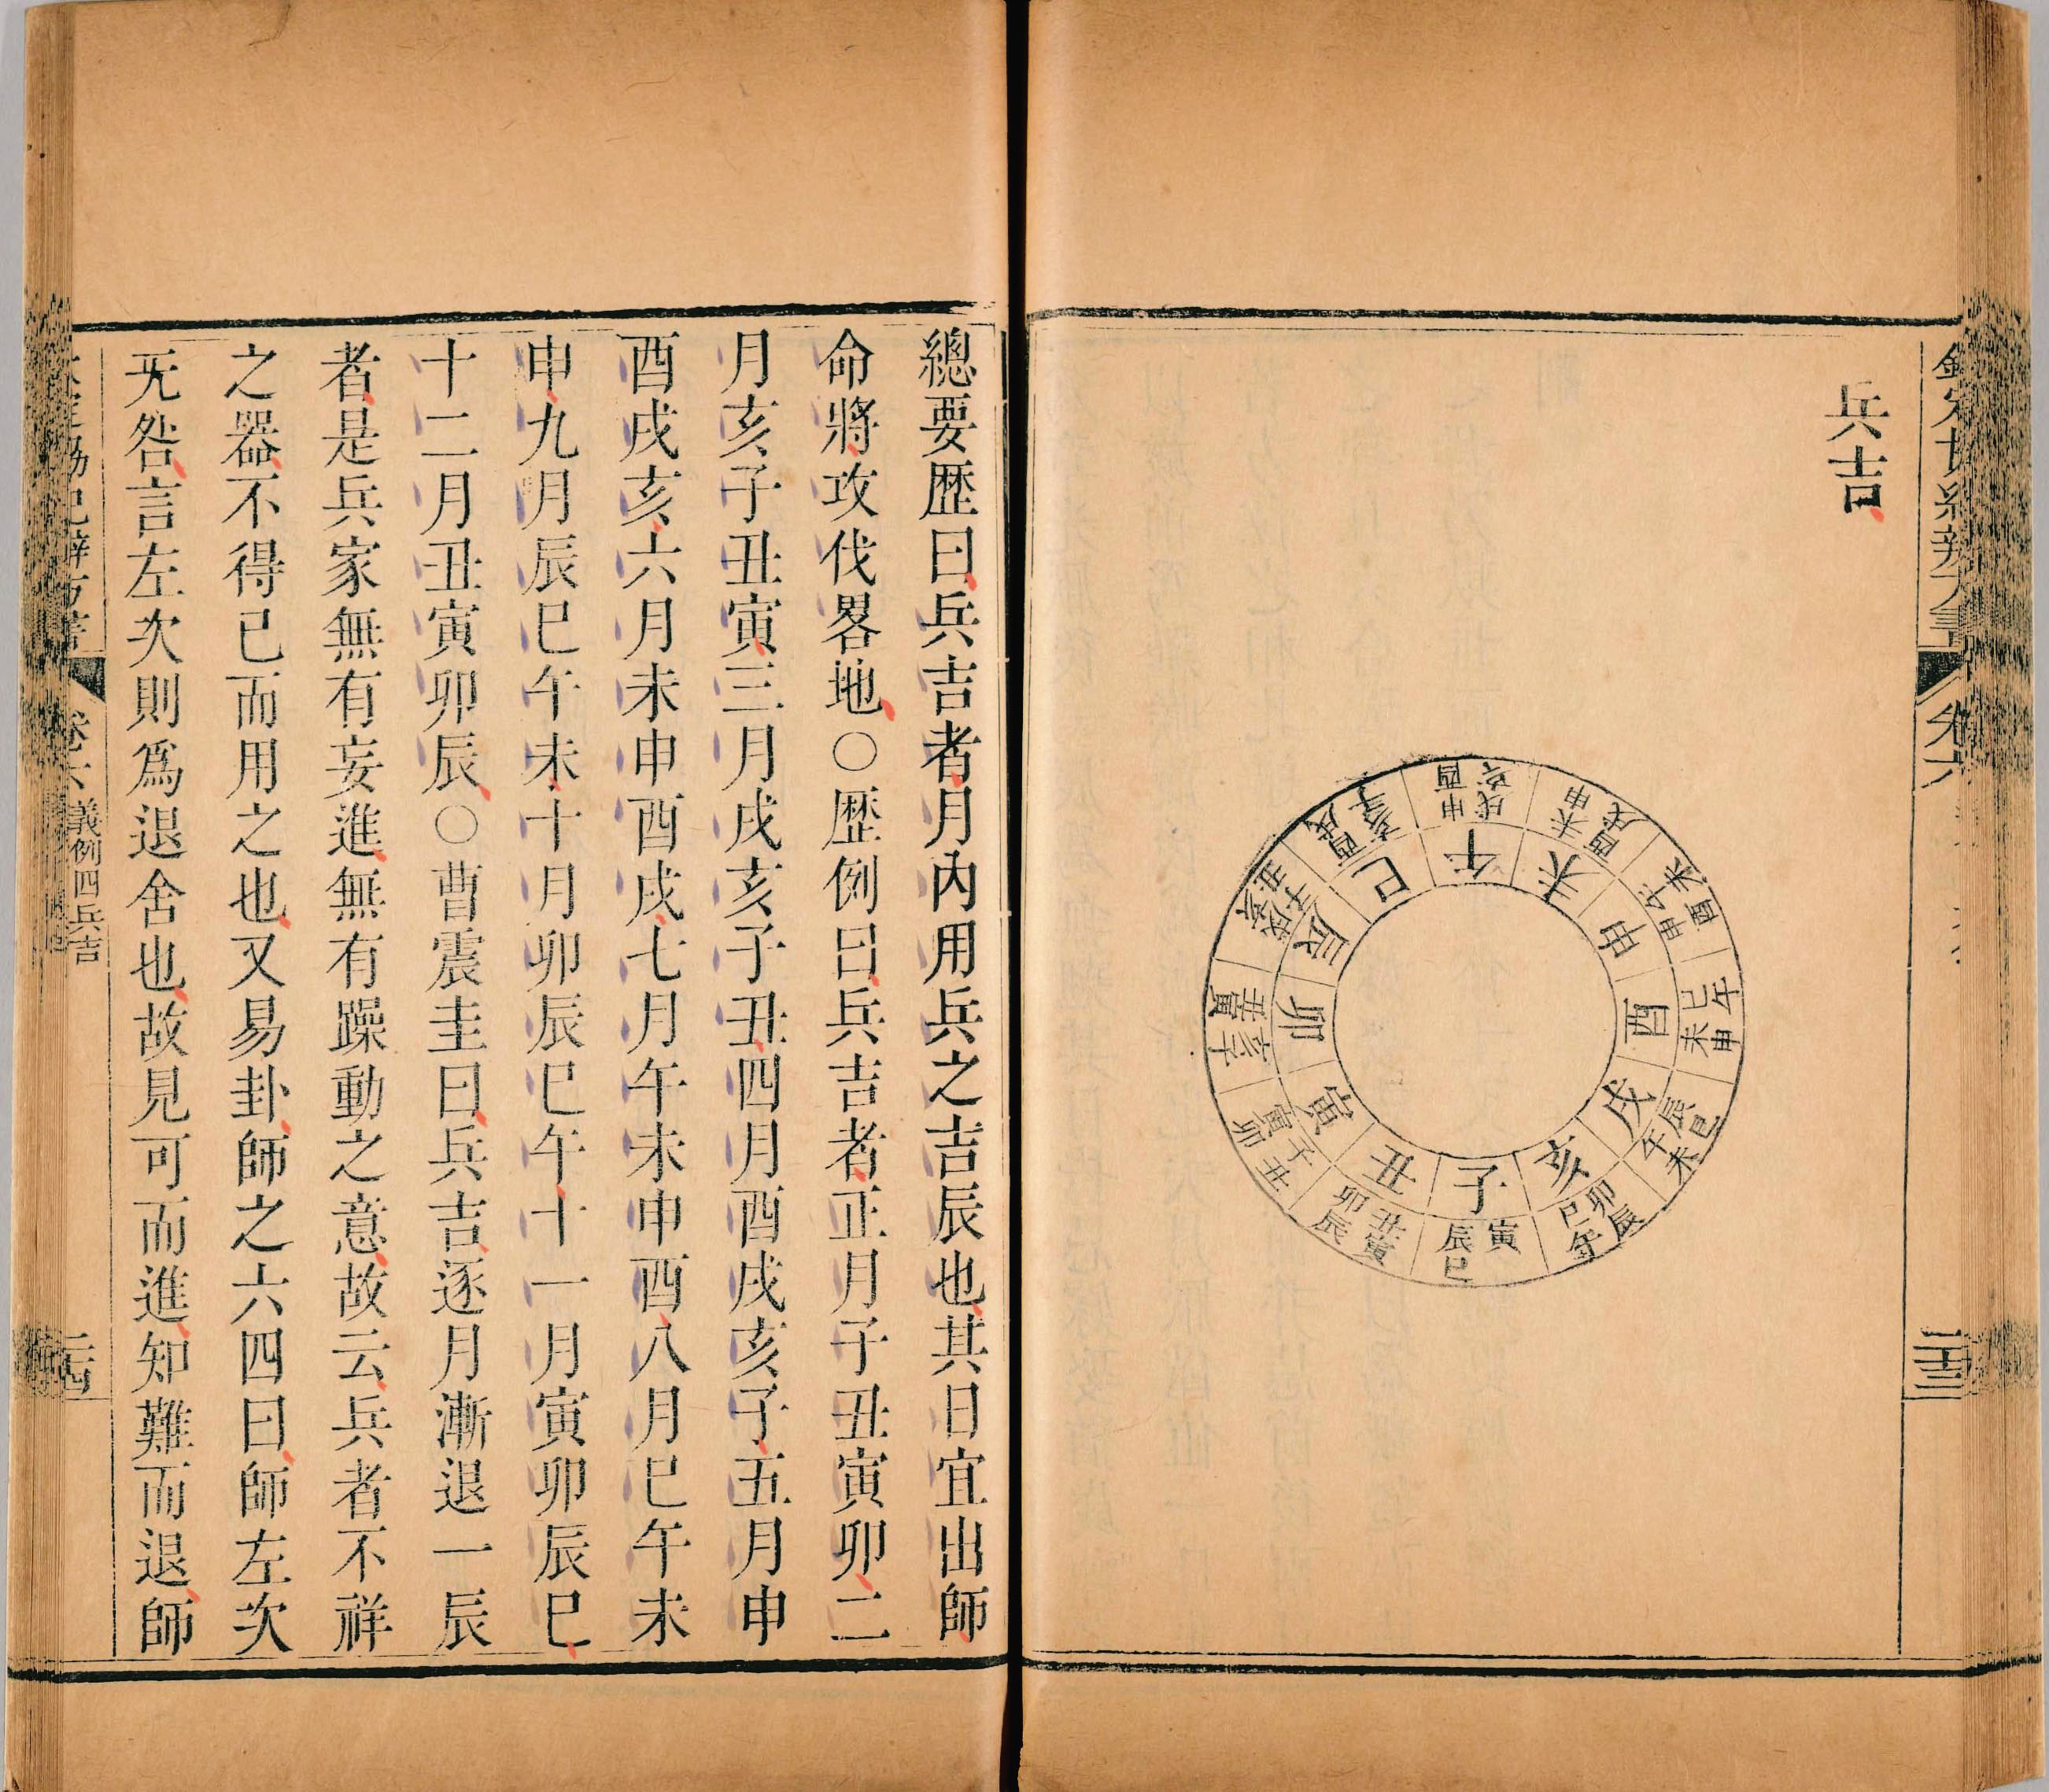 卷六
二十三
兵吉
午
申酉戌亥
未
未申酉戌
申
午未申酉
酉
巳午未申
戌
辰巳午未
亥
卯辰巳午
子
寅辰巳
丑
丑寅卯辰
寅
子丑寅卯
卯
亥子丑寅
辰
戌亥子丑
巳
酉戌亥子
總要歷曰兵吉者月內用兵之吉辰也其日宜出師
命將攻伐畧地○歷例曰兵吉者正月子丑寅卯二
月亥子丑寅三月戌亥子丑四月酉戌亥子五月申
酉戌亥六月未申酉戌七月午未申酉八月巳午未
申九月辰巳午未十月卯辰巳午十一月寅卯辰巳
十二月丑寅卯辰○曹震圭曰兵吉逐月漸退一辰
者是兵家無有妄進無有躁動之意故云兵者不祥
之器不得已而用之也又易卦師之六四曰師左次
无咎言左次則爲退舍也故見可而進知難而退師
卷六 義例四兵吉